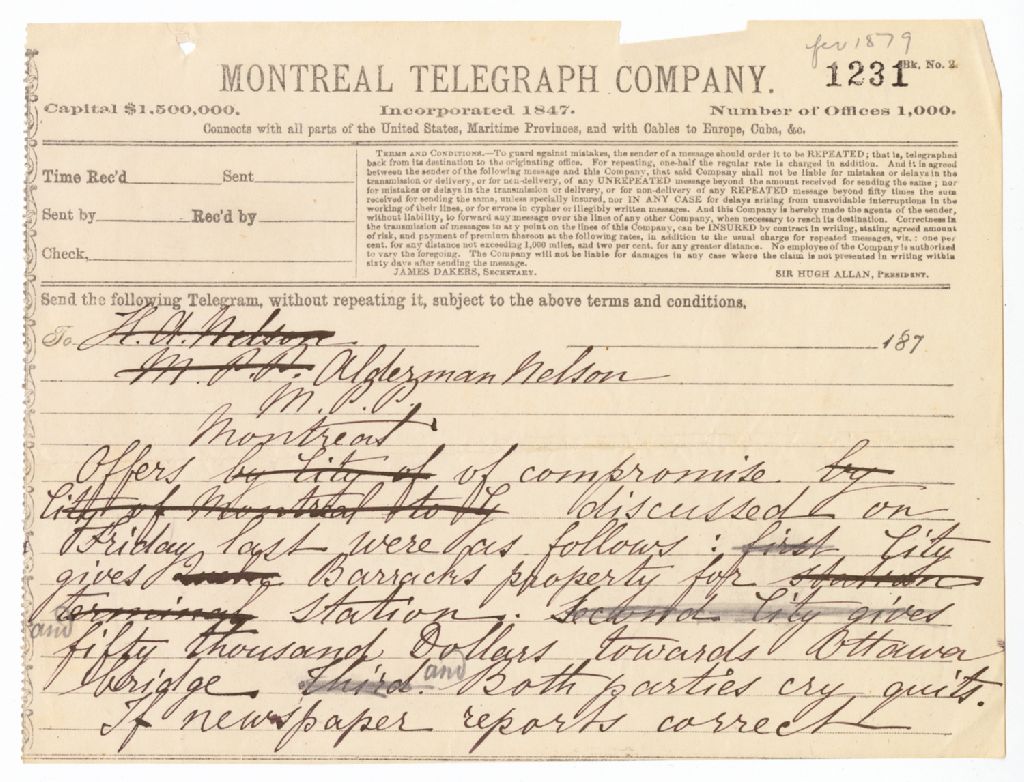 fev 1879
1231 Bk. No. 2.
MONTREAL TELEGRAPH COMPANY.
Capital $1,500,000. Incorporated 1847. Number of Offices 1,000.
Connects with all parts of the United States, Maritime Provinces, and with Cables to Europe, Cuba, &c.
Time Rec'd Sent
Sent by Rec'd by
Check,
TERMS AND CONDITIONS.—To guard against mistakes, the sender of a message should order it to be REPEATED; that is, telegraphed
back from its destination to the originating office. For repeating, one-half the regular rate is charged in addition. And it is agreed
between the sender of the following message and this Company, that said Company shall not be liable for mistakes or delays in the
transmission or delivery, or for non-delivery, of any UNREPEATED message beyond the amount received for sending the same; nor
for mistakes or delays in the transmission or delivery, or for non-delivery of any REPEATED message beyond fifty times the sum
received for sending the same, unless specially insured, nor IN ANY CASE for delays arising from unavoidable interruptions in the
working of their lines, or for errors in cypher or illegibly written messages. And this Company is hereby made the agents of the sender,
without liability, to forward any message over the lines of any other Company, when necessary to reach its destination. Correctness in
the transmission of messages to any point on the lines of this Company, can be INSURED by contract in writing, stating agreed amount
of risk, and payment of premium thereon at the following rates, in addition to the usual charge for repeated messages, viz.: one per
cent. for any distance not exceeding 1,000 miles, and two per cent. for any greater distance. No employee of the Company is authorized
to vary the foregoing. The Company will not be liable for damages in any case where the claim is not presented in writing within
sixty days after sending the message.
JAMES DAKERS, SECRETARY. SIR HUGH ALLAN, PRESIDENT.
Send the following Telegram, without repeating it, subject to the above terms and conditions,
To H. A. Nelson 187
M. P. P. Alderman Nelson
M. P. P.
Montreal
Offers by City of of compromise by
City of Montreal to Q discussed on
Friday last were as follows: first City
gives Barracks property for station
terminal station. Second City gives
and
fifty thousand Dollars towards Ottawa
bridge. Third and Both parties cry quits.
If newspaper reports correct